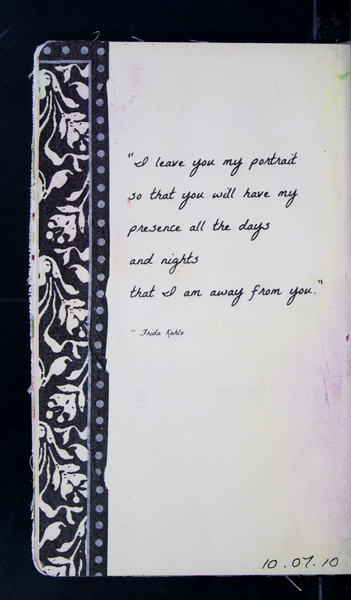 "I leave you my portrait
so that you will have my
presence all the days
and nights
that I am away from you."
~ Frida Kahlo
10.07.10